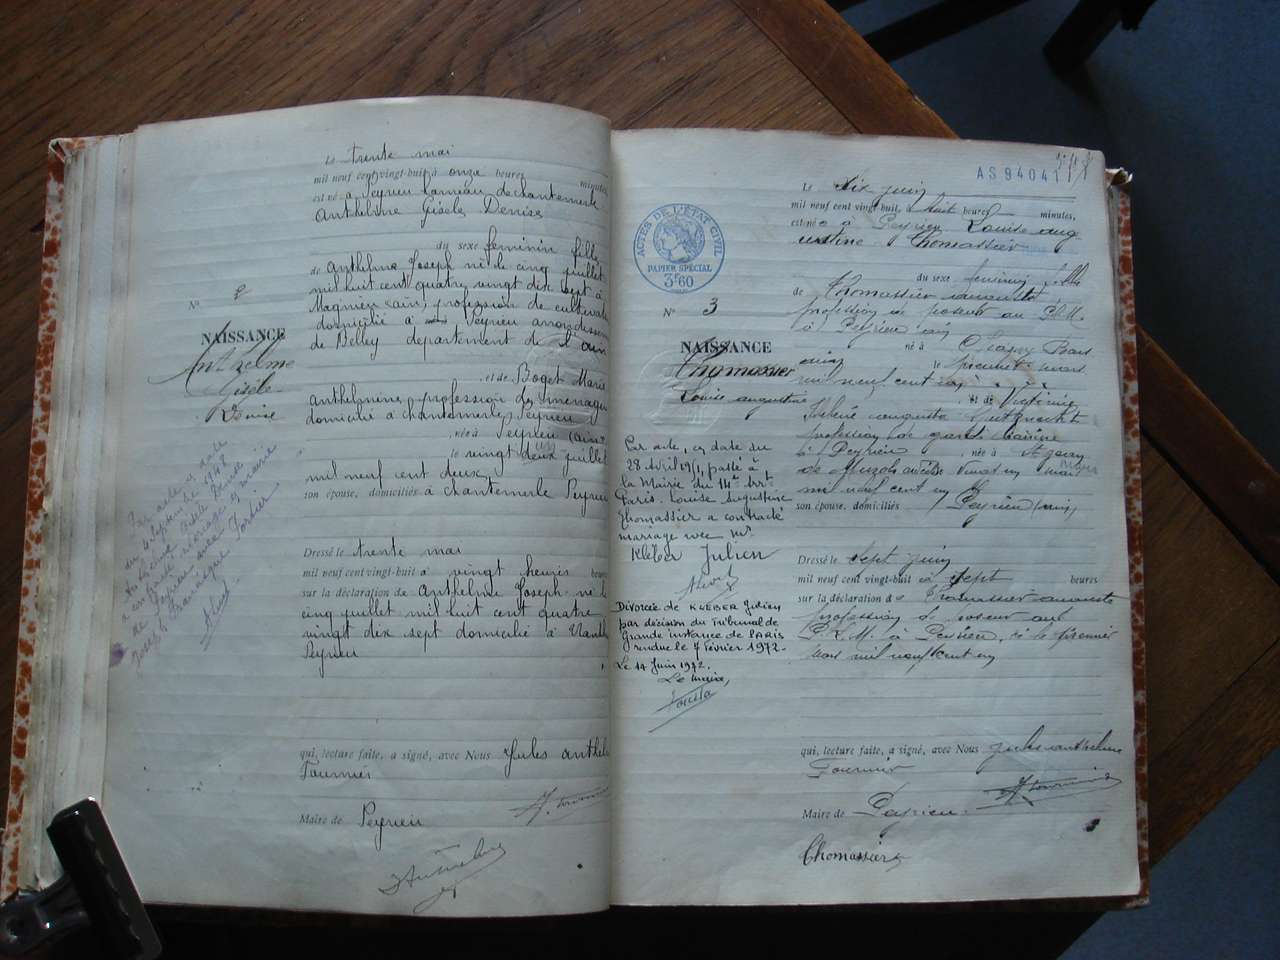 Le trente mai
mil neuf cent vingt-huit à onze heures minutes,
est né à Peyrieu hameau de chantemerle
Anthelme Gisèle Denise
du sexe féminin fille
de Anthelme Joseph né le cinq juillet
mil huit cent quatre vingt dix sept à
Magnieu (ain) profession de cultivate
domicilié à Peyrieu arrondissem
de Belley département de l'ain
N° 2
NAISSANCE
Anthelme
Gisèle
Denise
et de Boget Marie
anthelmine, profession de ménagère
domicilié à chantemerle, Peyrieu
née à Peyrieu (ain)
le vingt deux juillet
mil neuf cent deux,
son épouse, domiciliés à chantemerle Peyrieu
Par acte en date
du 4 septembre 1948
Anthelme Gisèle Denise
a contracté mariage en mairie
de Peyrieu avec
Joseph François Tortier
Dressé le trente mai
mil neuf cent vingt-huit à vingt heures heures
sur la déclaration de Anthelme Joseph né le
cinq juillet mil huit cent quatre
vingt dix sept domicilié à
Peyrieu
qui, lecture faite, a signé, avec Nous Jules anthel
Fournier
Maire de Peyrieu
AS 94041
ACTES DE L'ÉTAT CIVIL
PAPIER SPÉCIAL
3F60
Le six juin
mil neuf cent vingt-huit, à huit heures minutes,
est née à Peyrieu Louise aug
ustine Thomassier
du sexe féminin fille
de Thomassier auguste,
profession de poseur au P.L.M.
à Peyrieu ain
né à
ain le premier mars
mil neuf cent un
N° 3
NAISSANCE
Thomassier
Louise augustine
et de Victorine
Hélène augusta
profession de garde barrière
à Peyrieu née à
de vingt un mai
mil neuf cent un
son épouse, domiciliés à Peyrieu (ain)
Par acte, en date du
28 Avril 1951, passé à
la Mairie du 14e Arrt
Paris. Louise Augustine
Thomassier a contracté
mariage avec Mr
Kléber Julien
Divorcée de KLEBER Julien
par décision du Tribunal de
Grande instance de PARIS
rendue le 7 Février 1972-
Le 14 Juin 1972.
Le Maire,
Dressé le sept juin
mil neuf cent vingt-huit à sept heures
sur la déclaration de Thomassier auguste
profession de poseur au
P.L.M. à Peyrieu, né le premier
mars mil neuf cent un
qui, lecture faite, a signé, avec Nous Jules anthelme
Fournier
Maire de Peyrieu.
Thomassier